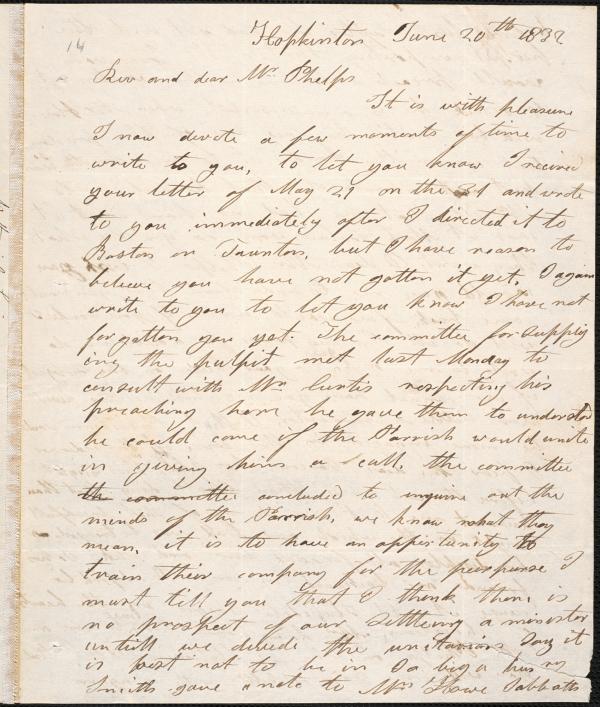 14
Hopkinton June 20th 1832
Rev and dear Mr. Phelps
It is with pleasure
I now devote a few moments of time to
write to you, to let you know I recieved
your letter of May 29 on the 31 and wrote
to you immediately after I directed it to
Boston or Taunton, but I have reason to
believe you have not gotten it yet, I again
write to you to let you know I have not
forgotten you yet. The committee for supply
ing the pulpit met last Monday to
consult with Mr Curtis respecting his
preaching here he gave them to understand
he could come if the Parrish would unite
in giving him a call. the committee
the committee concluded to inquire out the
minds of the Parrish, we know what they
mean, it is to have an oppertunity to
train their company for the purpurse I
must till you that I think there is
no prospect of our settleing a minister
untill we divide the unitarians say it
is best not to be in
Smith gave a note to Mrs Howe Sabbath